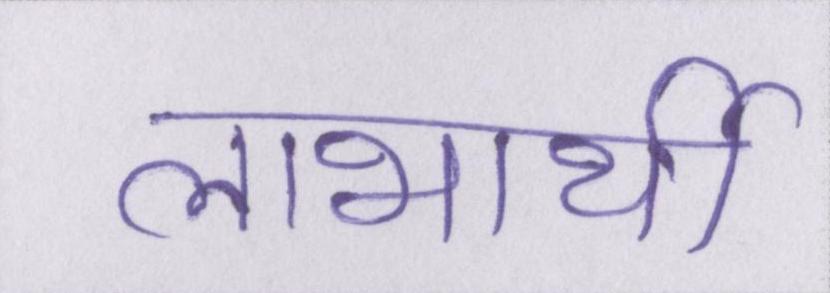 लाभार्थी